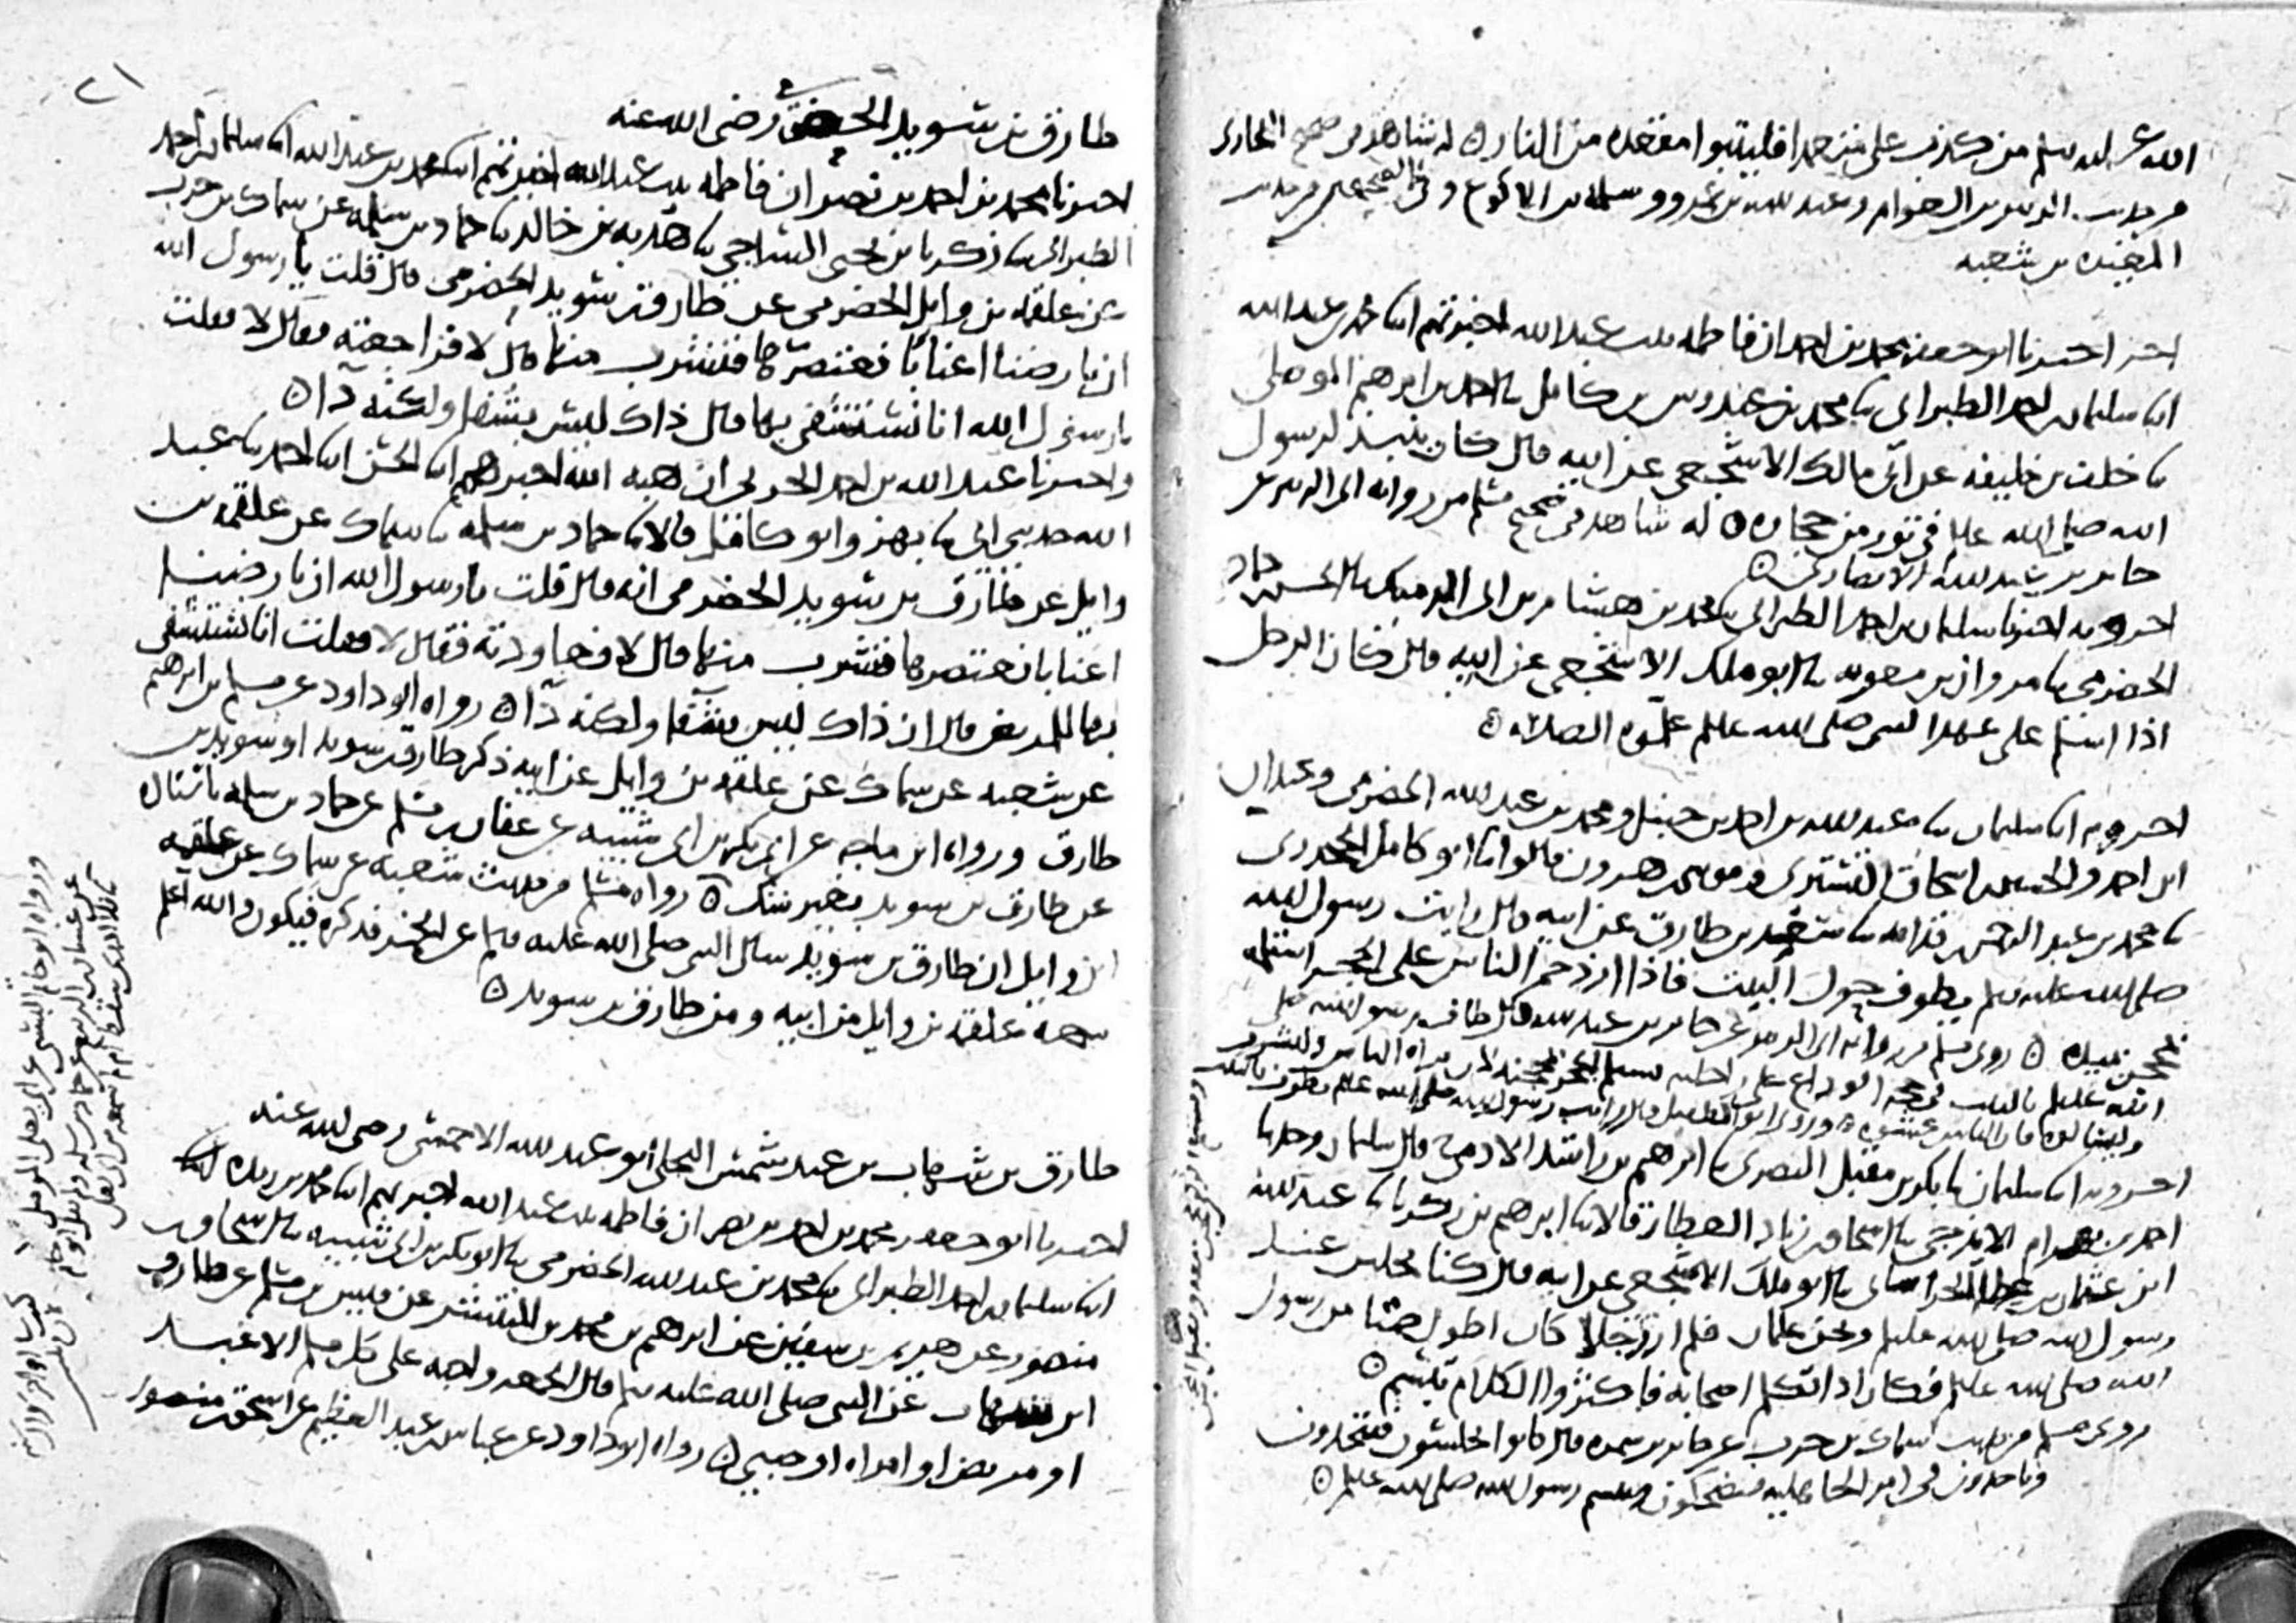 الله عليه وسلم من كذب علي متعمدا فليتبوا مقعده من النار ٥ له شاهد في صحيح البخاري
من حديث الزبير بن العوام وعبد الله بن عمرو وسلمه بن الاكوع وفي الصحيحين من حديث
المغيره بن شعبه
اخر اخبرنا ابو جعفر محمد بن احمد ان فاطمه بنت عبد الله اخبرتهم ابنا محمد بن عبد الله
ابنا سليمن بن احمد الطبراني نا محمد بن عبدوس بن كامل نا احمد بن ابرهيم الموصلي
نا خلف بن خليفه عن ابي مالك الاشجعي عن ابيه قال كان ينبذ لرسول
الله صلى الله عليه في تور من حجاره ٥ له شاهد في صحيح مسلم من روايه ابي الزبير عن
جابر بن عبد الله الانصاري ٥
اخر وبه اخبرنا سليمان بن احمد الطبراني نا محمد بن هشام بن ابي الدميك نا الحسن بن حماد
الحضرمي نا مروان بن معويه نا ابو ملك الاشجعي عن ابيه قال كان الرجل
اذا اسلم على عهد النبي صلى الله عليه علموه الصلاه ٥
اخر وبه ابنا سليمان نا عبد الله بن احمد بن حنبل ومحمد بن عبد الله الحضرمي وعبدان
ابن احمد والحسين بن اسحاق التستري وموسى بن هرون قالوا نا ابو كامل الجحدري
نا محمد بن عبد الرحمن نا سعد بن طارق عن ابيه قال رايت رسول الله
صلى الله عليه وسلم يطوف حول البيت فاذا ازدحم الناس على الحجر استلمه
بمحجن بيده ٥ روى مسلم من روايه ابي الزبير عن جابر بن عبد الله قال طاف رسول الله صلى
الله عليه بالبيت في حجه الوداع على راحلته يستلم الحجر بمحجنه لان يراه الناس وليشرف
وليسالوه فان الناس غشوه ٥ وروى ابو الطفيل قال رايت رسول الله صلى الله عليه يطوف بالبيت
اخر وبه ابنا سليمان نا بكر بن مقبل البصري نا ابرهيم بن راشد الادمي قال سليمان وحدثنا
احمد بن بهرام الايذجي نا اسحاق بن زياد العطار قالا نا ابرهيم بن زكريا نا عبد الله
ابن عثمان بن عطا الخراساني نا ابو ملك الاشجعي عن ابيه قال كنا نجلس عند
رسول الله صلى الله عليه ونحن غلمان فلم ار رجلا كان اطول صمتا من رسول
الله صلى الله عليه فكان اذا تكلم اصحابه فاكثروا الكلام تبسم ٥
روى مسلم من حديث سماك بن حرب عن جابر بن سمره قال كانوا يجلسون فيتحدثون
وياخذون في امر الجاهليه فيضحكون ويتبسم رسول الله صلى الله عليه ٥
٢١
طارق بن سويد الحضرمي رضي الله عنه
اخبرنا محمد بن احمد بن نصر ان فاطمه بنت عبد الله اخبرتهم ابنا محمد بن عبد الله ابنا سليمان بن احمد
الطبراني نا زكريا بن يحيى الساجي نا هدبه بن خالد نا حماد بن سلمه عن سماك بن حرب
عن علقمه بن وايل الحضرمي عن طارق بن سويد الحضرمي قال قلت يا رسول الله
ان بارضنا اعنابا نعتصرها فنشرب منها قال لا فراجعته فقال لا فقلت
يا رسول الله انا نستشفي بها قال ذاك ليس بشفا ولكنه دا ٥
واخبرنا عبد الله بن احمد الحربي ان هبه الله اخبرهم ابنا الحسن ابنا احمد نا عبد
الله حدثني ابي نا بهز وابو كامل قالا نا حماد بن سلمه نا سماك عن علقمه بن
وايل عن طارق بن سويد الحضرمي انه قال قلت يا رسول الله ان بارضنا
اعنابا نعتصرها فنشرب منها قال لا فعاودته فقال لا فقلت انا نستشفي
بها للمريض قال ان ذاك ليس بشفا ولكنه دا ٥ رواه ابو داود عن مسلم بن ابرهيم
عن شعبه عن سماك عن علقمه بن وايل عن ابيه ذكر طارق بن سويد او سويد بن
طارق ورواه ابن ماجه عن ابي بكر بن ابي شيبه عن عفان بن مسلم عن حماد بن سلمه باسناده
عن طارق بن سويد بغير شك ٥ رواه مسلم من حديث شعبه عن سماك عن علقمه
ابن وايل ان طارق بن سويد سال النبي صلى الله عليه وسلم عن الخمر فذكره فيكون والله اعلم
سمعه علقمه بن وايل من ابيه ومن طارق بن سويد ٥
طارق بن شهاب بن عبد شمس البجلي ابو عبد الله الاحمسي رضي الله عنه
اخبرنا ابو جعفر محمد بن احمد بن نصر ان فاطمه بنت عبد الله اخبرتهم ابنا محمد بن ريذه
ابنا سليمان بن احمد الطبراني نا محمد بن عبد الله الحضرمي نا ابو بكر بن ابي شيبه نا اسحاق بن
منصور عن هريم بن سفين عن ابرهيم بن محمد بن المنتشر عن قيس بن مسلم عن طارق
ابن شهاب عن النبي صلى الله عليه وسلم قال الجمعه واجبه على كل مسلم الا عبد
او مريض او امراه او صبي ٥ رواه ابو داود عن عباس بن عبد العظيم عن اسحق بن منصور
ورواه ابو حاتم البستي عن ابي يعلى الموصلي
عن غسان بن الربيع عن حماد بن سلمه